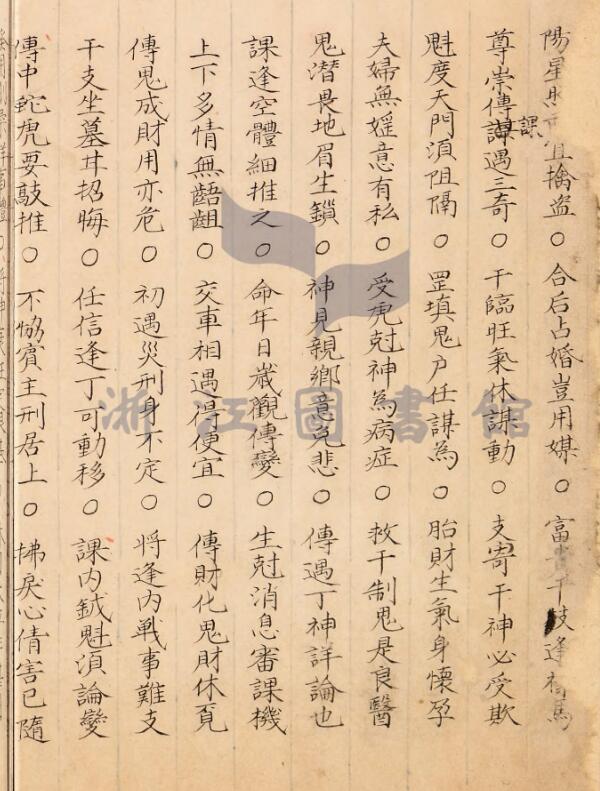 陽星照 宜擒盜○合后占婚豈用媒○富貴干支逢祿馬
尊崇傳課遇三奇○干臨旺氣休謀動○支寄干神必受欺
魁度天門湏阻隔○罡填鬼户任謀為○胎財生氣身懷孕
夫婦無婬意有私○受虎尅神為病症○救干制鬼是良醫
鬼潛畏地眉生鎖○神見親鄉意免悲○傳遇丁神詳論也
課逢空體細推之○命年日嵗觀傳變○生尅消息審課機
上下多情無齬齟○交車相遇得便宜○傳財化鬼財休覓
傳鬼成財用亦危○初遇災刑身不定○將逢內戦事難支
干支坐墓甘招晦○任信逢丁可動移○課內鈇魁湏論變
傳中蛇虎要敲推○不恊賓主刑居上○拂戾心情害已隨
浙江圖書館